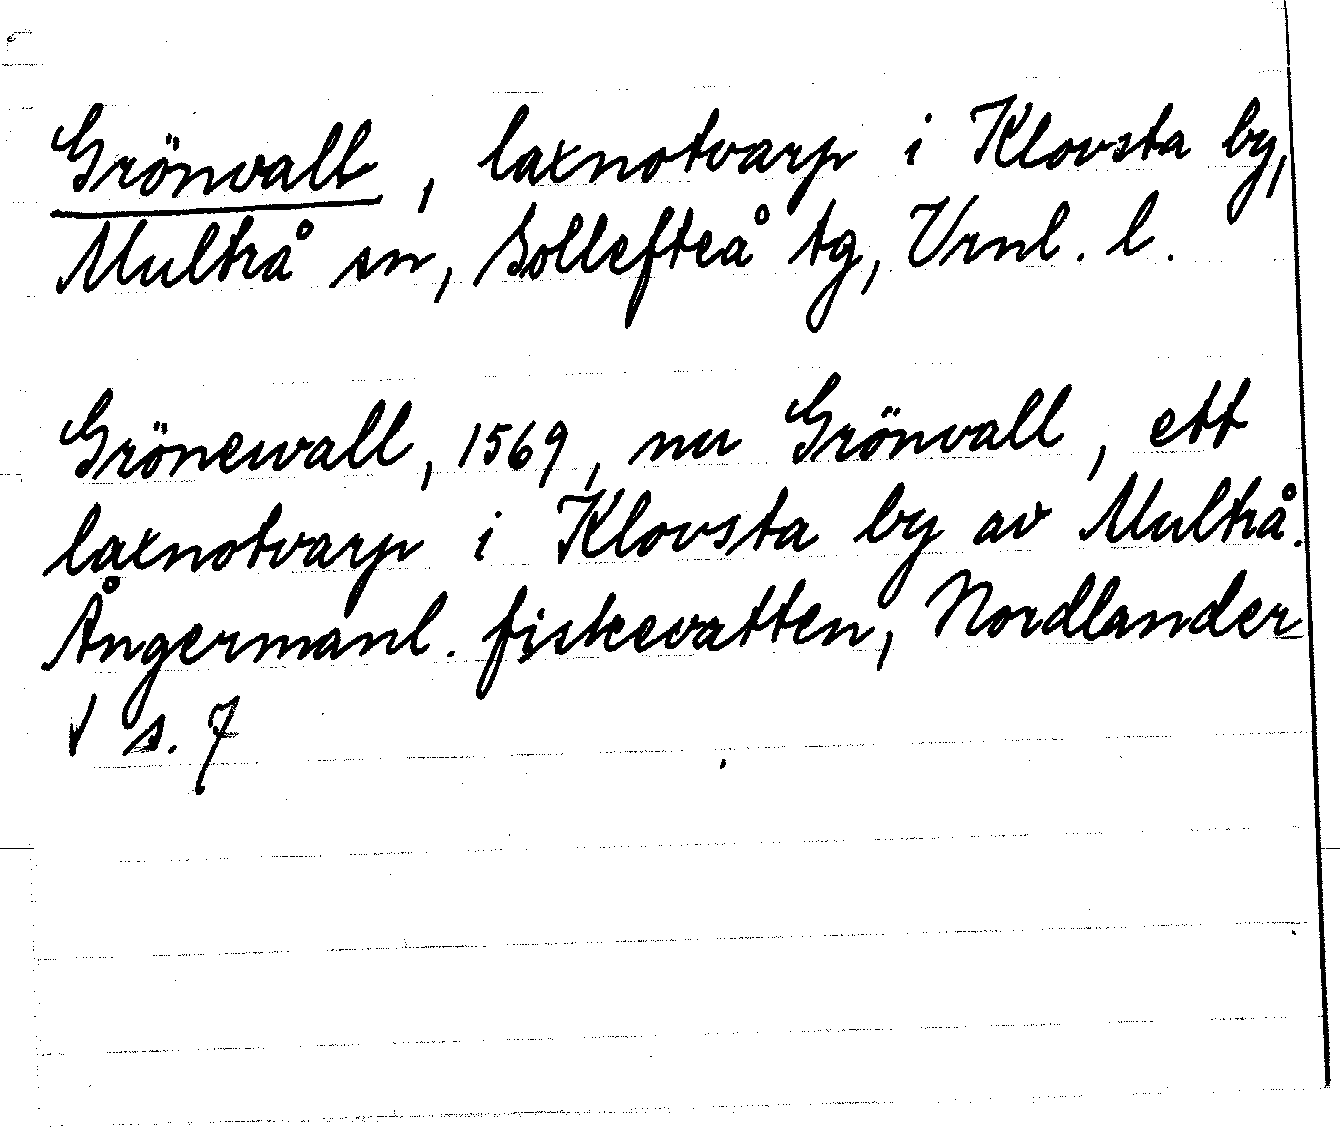 Grönvall, laxnotvarp i Klovsta by,
Multrå sn, Sollefteå tg, Vrnl. l.
Grönewall, 1569, nu Grönvall, ett
laxnotvarp i Klovsta by av Multrå.
Ångermanl. fiskevatten, Nordlander
s. 7